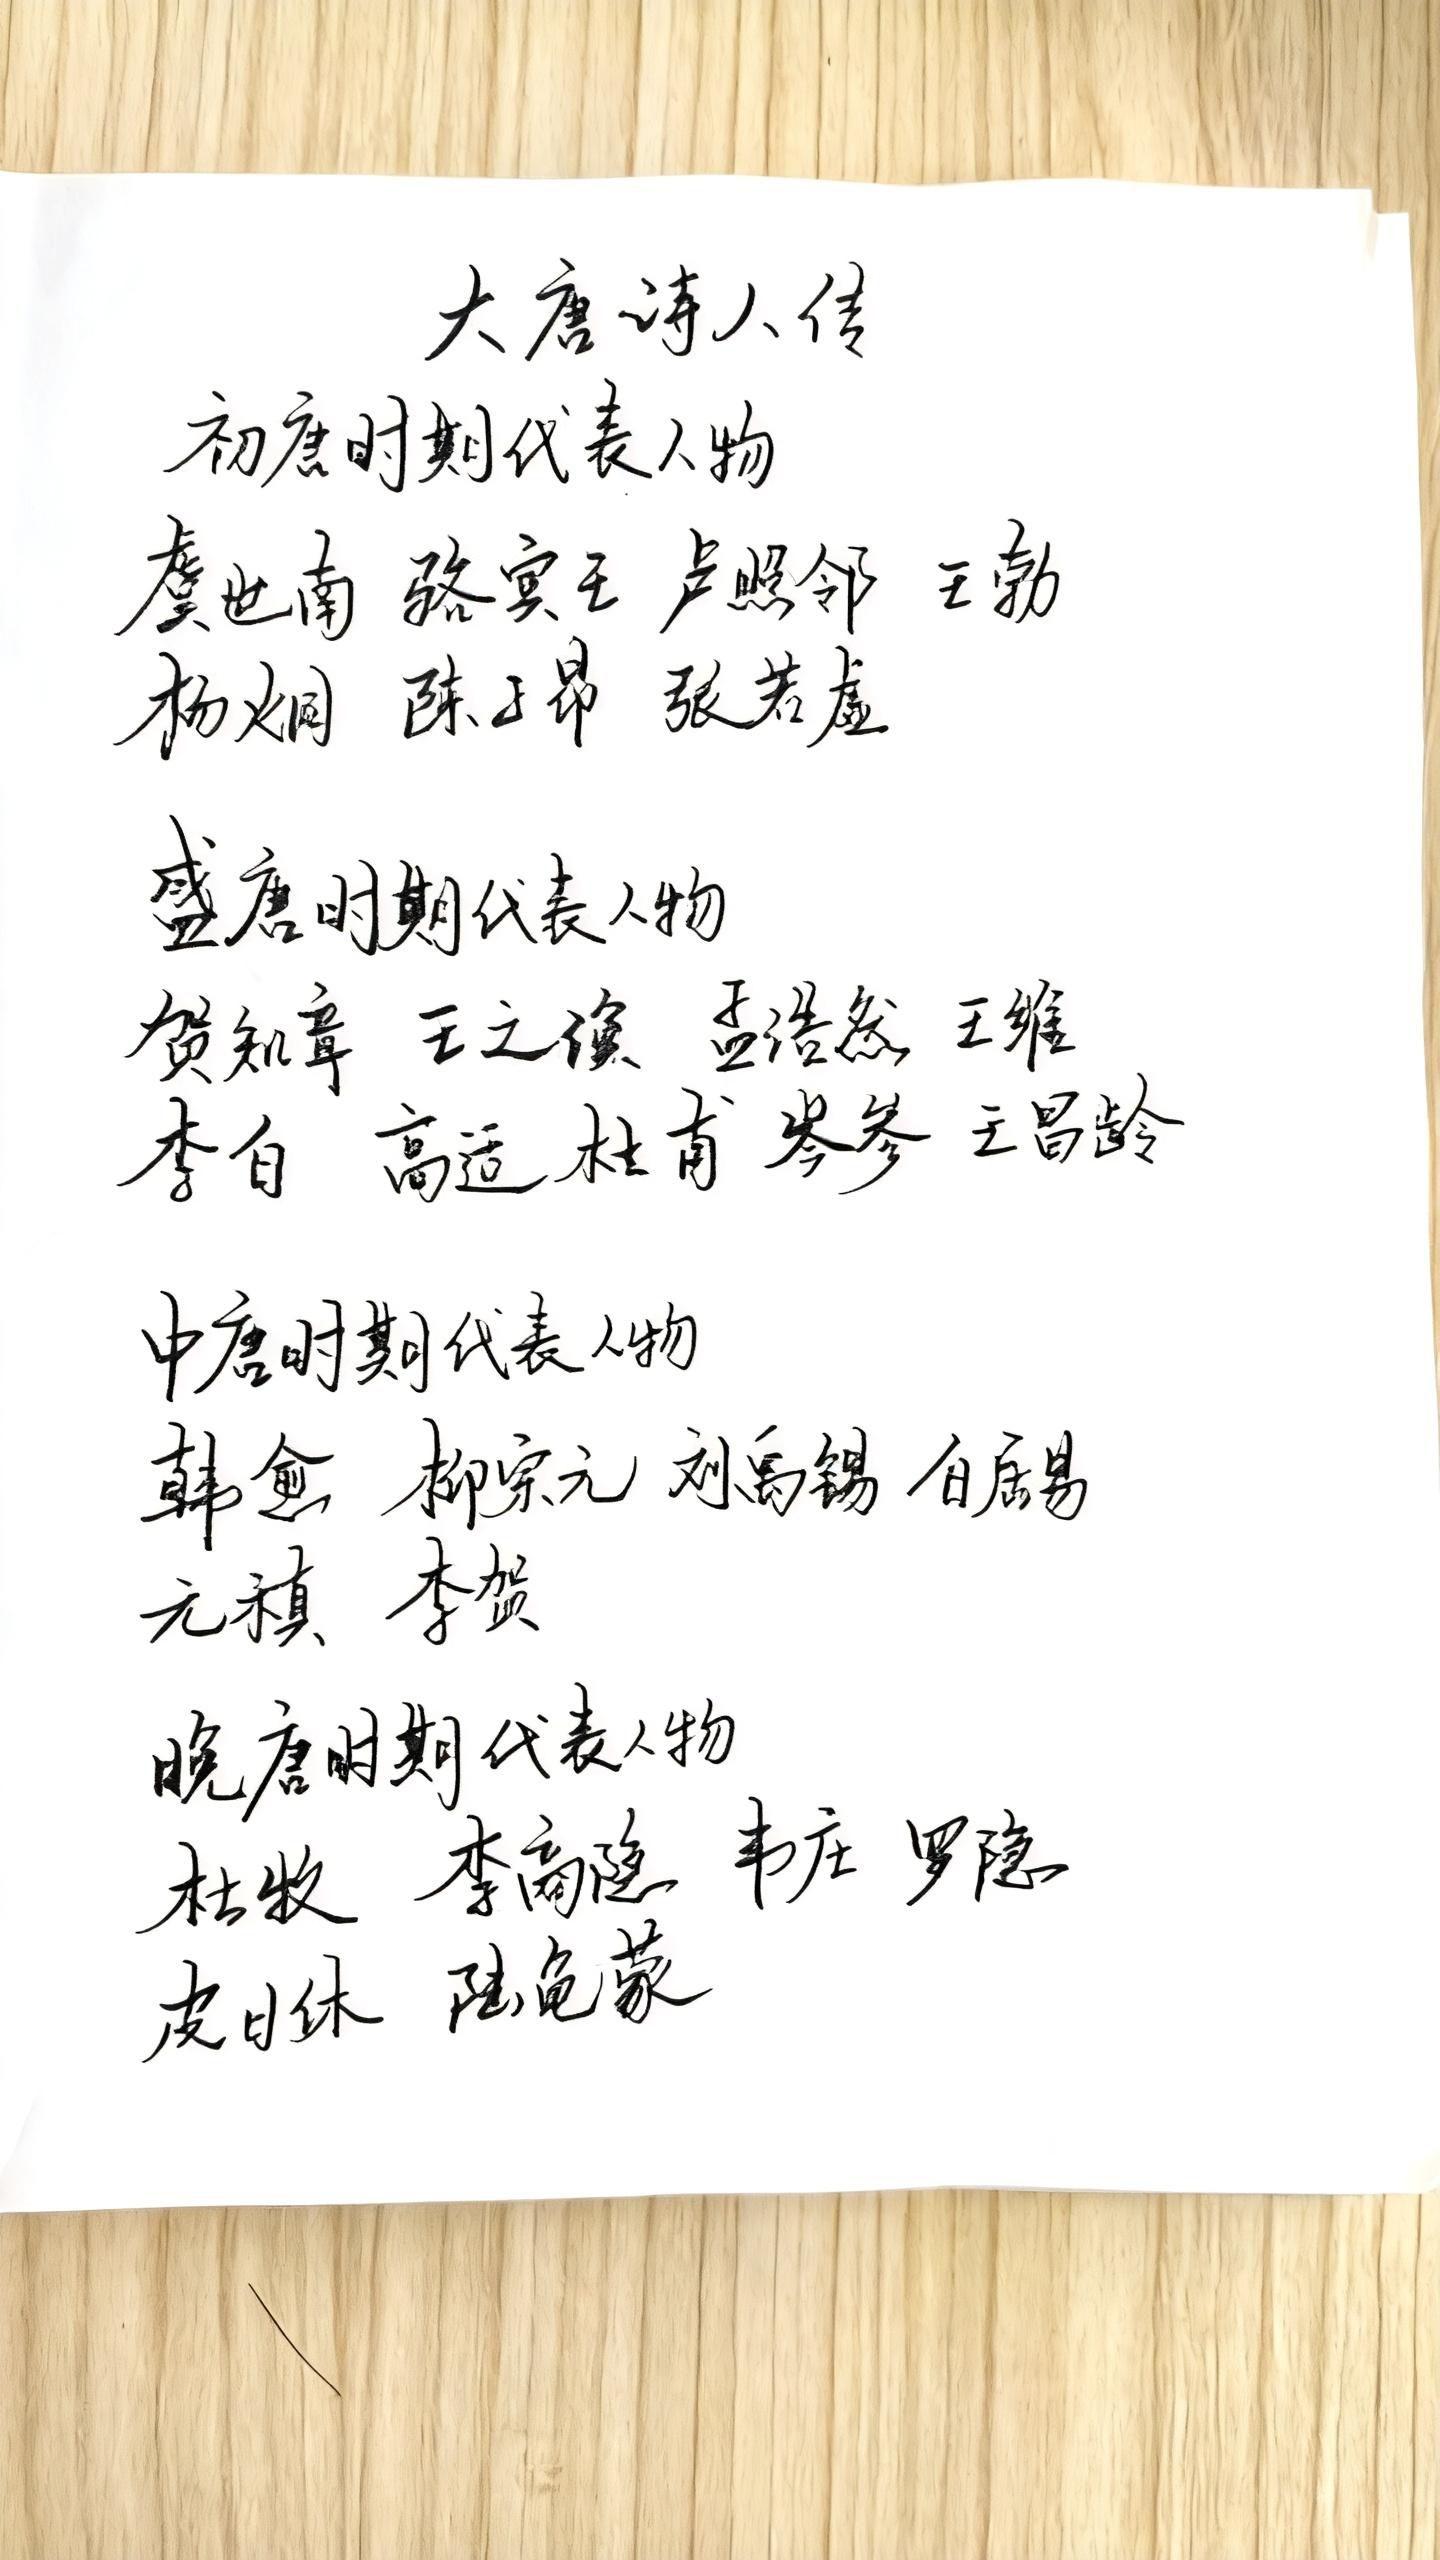 大唐诗人传
初唐时期代表人物
虞世南 骆宾王 卢照邻 王勃
杨炯 陈子昂 张若虚
盛唐时期代表人物
贺知章 王之涣 孟浩然 王维
李白 高适 杜甫 岑参 王昌龄
中唐时期代表人物
韩愈 柳宗元 刘禹锡 白居易
元稹 李贺
晚唐时期代表人物
杜牧 李商隐 韦庄 罗隐
皮日休 陆龟蒙